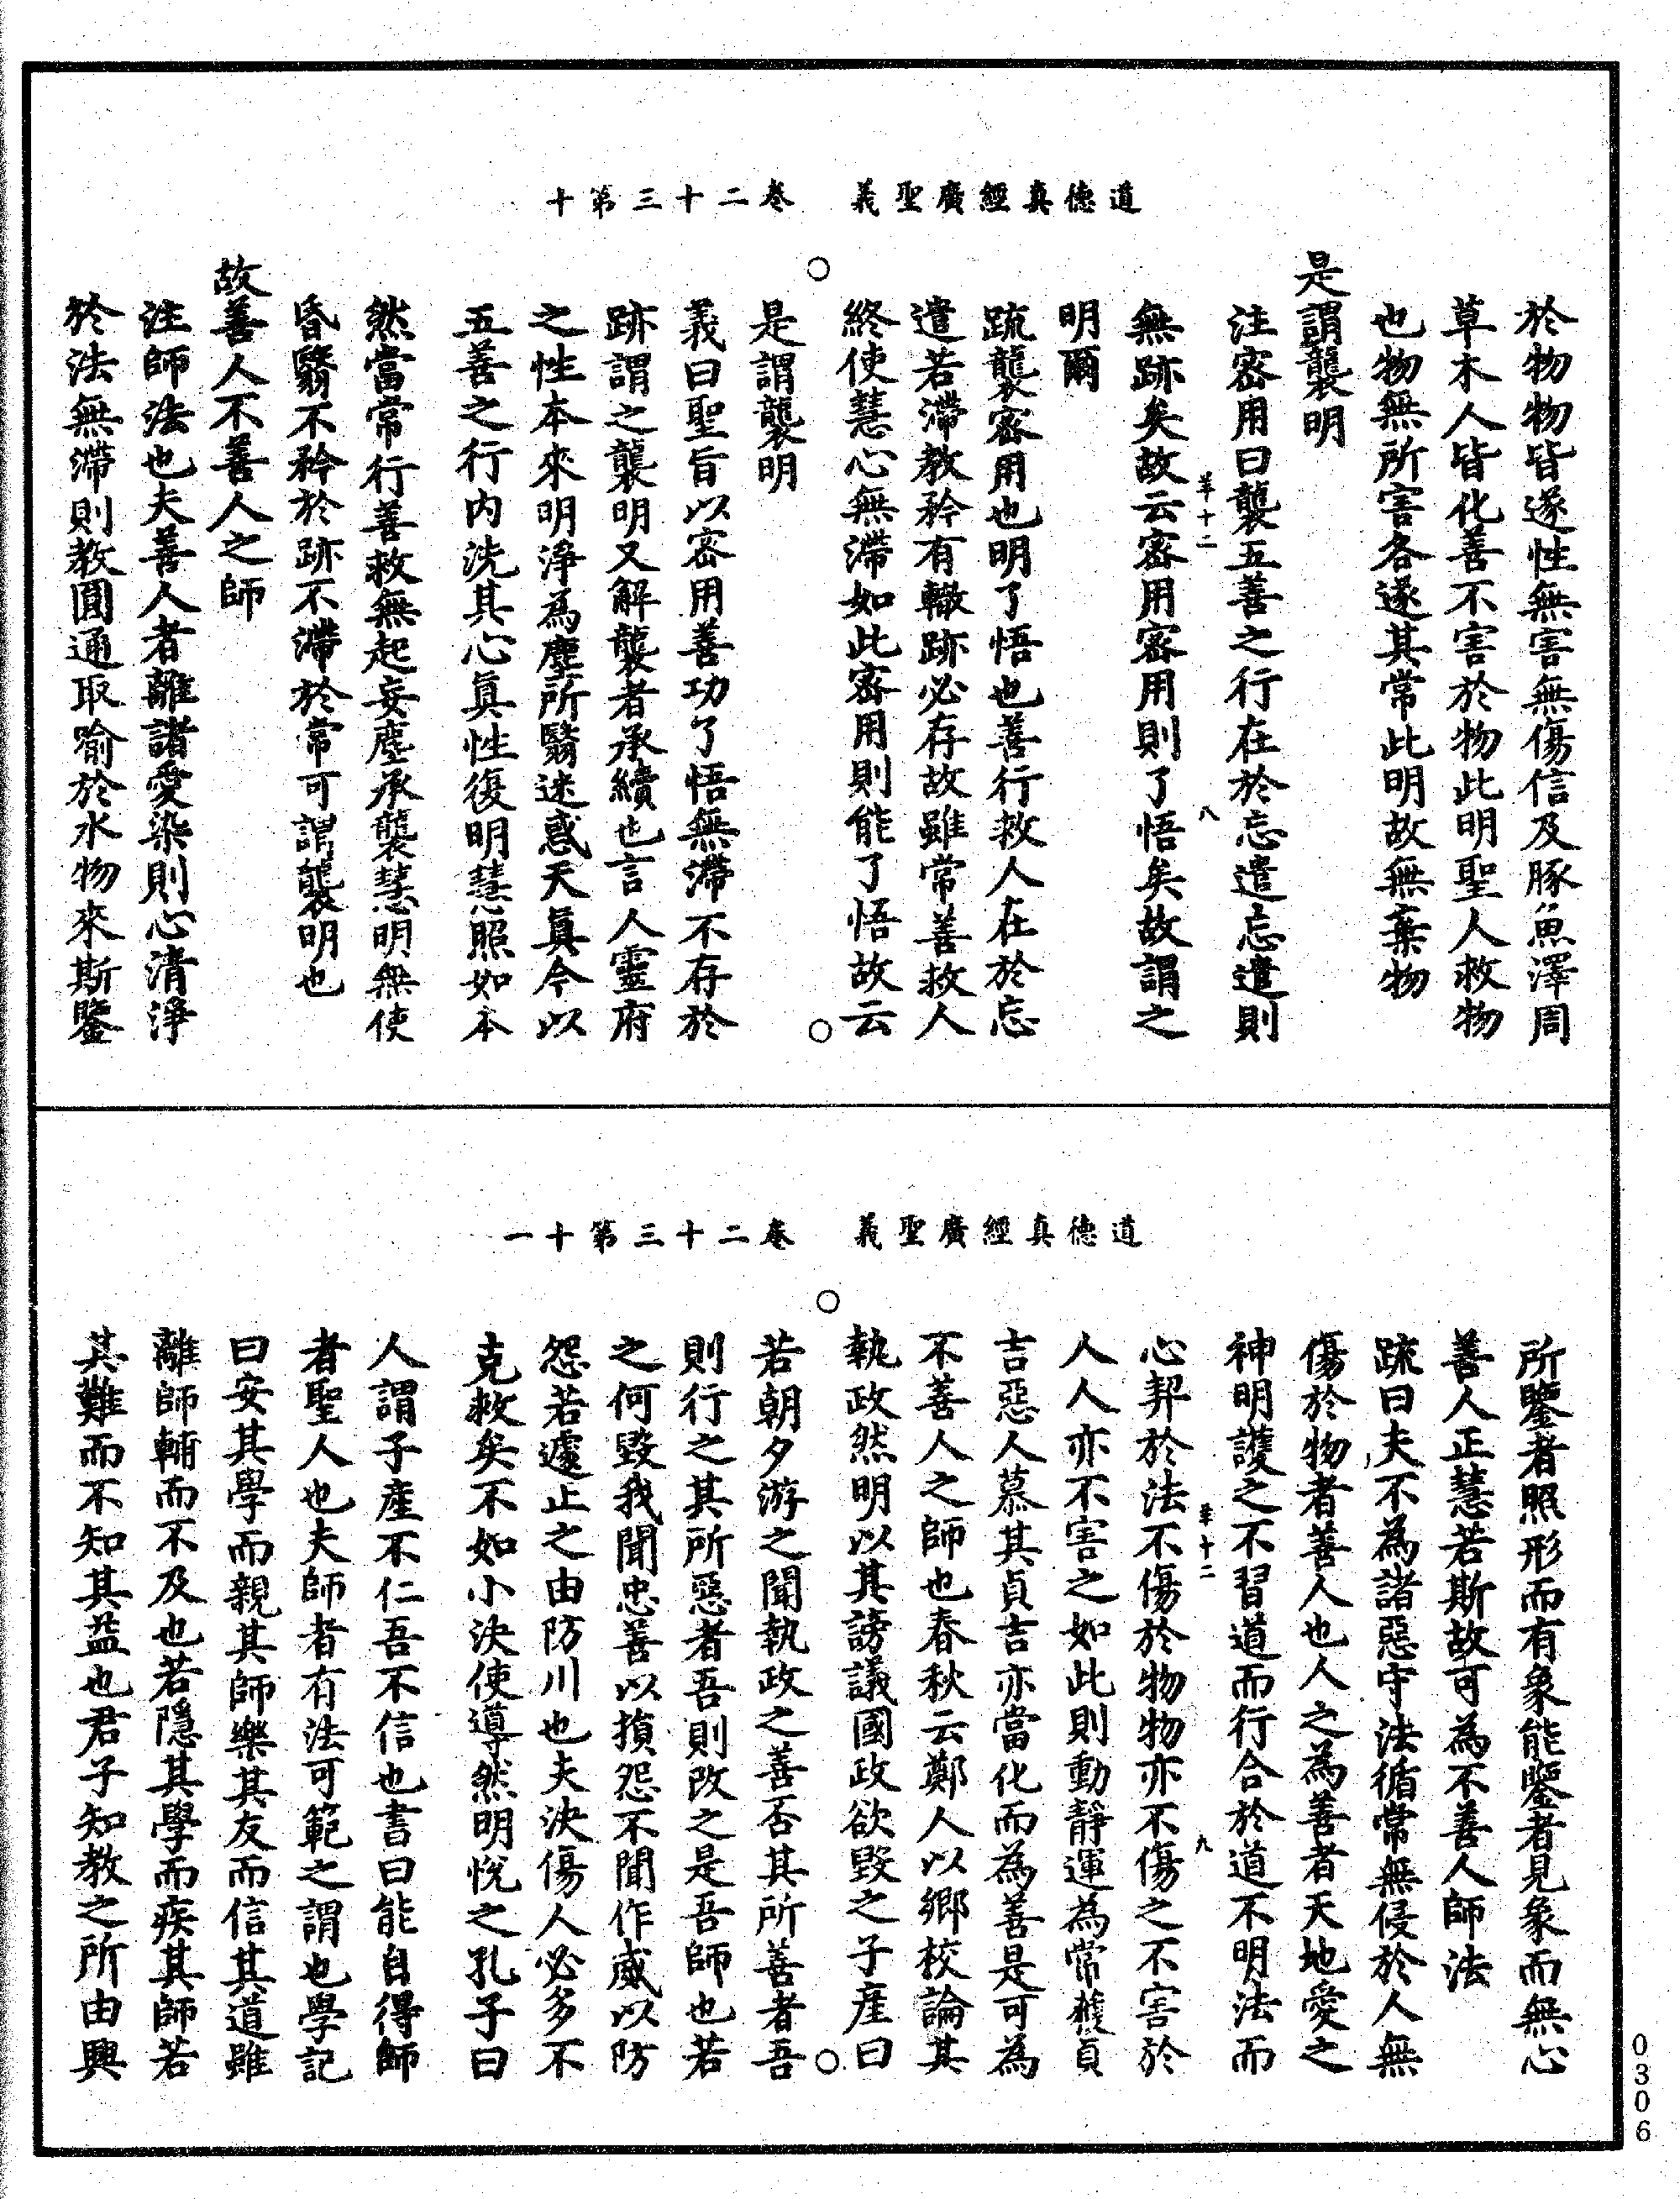 道德真經廣聖義　卷二十三第十
於物物皆遂性無害無傷信及豚魚澤周
草木人皆化善不害於物此明聖人救物
也物無所害各遂其常此明故無棄物
是謂襲明
注密用曰襲五善之行在於忘遣忘遣則
羊十二　八
無跡矣故云密用密用則了悟矣故謂之
明爾
疏襲密用也明了悟也善行救人在於忘
遣若滯教矜有轍跡必存故雖常善救人
終使慧心無滯如此密用則能了悟故云
是謂襲明
義曰聖旨以密用善功了悟無滯不存於
跡謂之襲明又解襲者承續也言人靈府
之性本來明淨為塵所翳迷惑天真今以
五善之行内洗其心真性復明慧照如本
然當常行善救無起妄塵承襲慧明無使
昏翳不矜於跡不滯於常可謂襲明也
故善人不善人之師
注師法也夫善人者離諸愛染則心清淨
於法無滯則教圓通取喻於水物來斯鑒
道德真經廣聖義　卷二十三第十一
所鑒者照形而有象能鑒者見象而無心
善人正慧若斯故可為不善人師法
疏曰夫不為諸惡守法循常無侵於人無
傷於物者善人也人之為善者天地愛之
神明護之不習道而行合於道不明法而
羊十二　九
心契於法不傷於物物亦不傷之不害於
人人亦不害之如此則動靜運為常獲貞
吉惡人慕其貞吉亦當化而為善是可為
不善人之師也春秋云鄭人以鄉校論其
執政然明以其謗議國政欲毀之子產曰
若朝夕游之聞執政之善否其所善者吾
則行之其所惡者吾則改之是吾師也若
之何毀我聞忠善以損怨不聞作威以防
怨若遽止之由防川也夫決傷人必多不
克救矣不如小決使導然明悅之孔子曰
人謂子產不仁吾不信也書曰能自得師
者聖人也夫師者有法可範之謂也學記
曰安其學而親其師樂其友而信其道雖
離師輔而不及也若隱其學而疾其師若
其難而不知其益也君子知教之所由興
0306